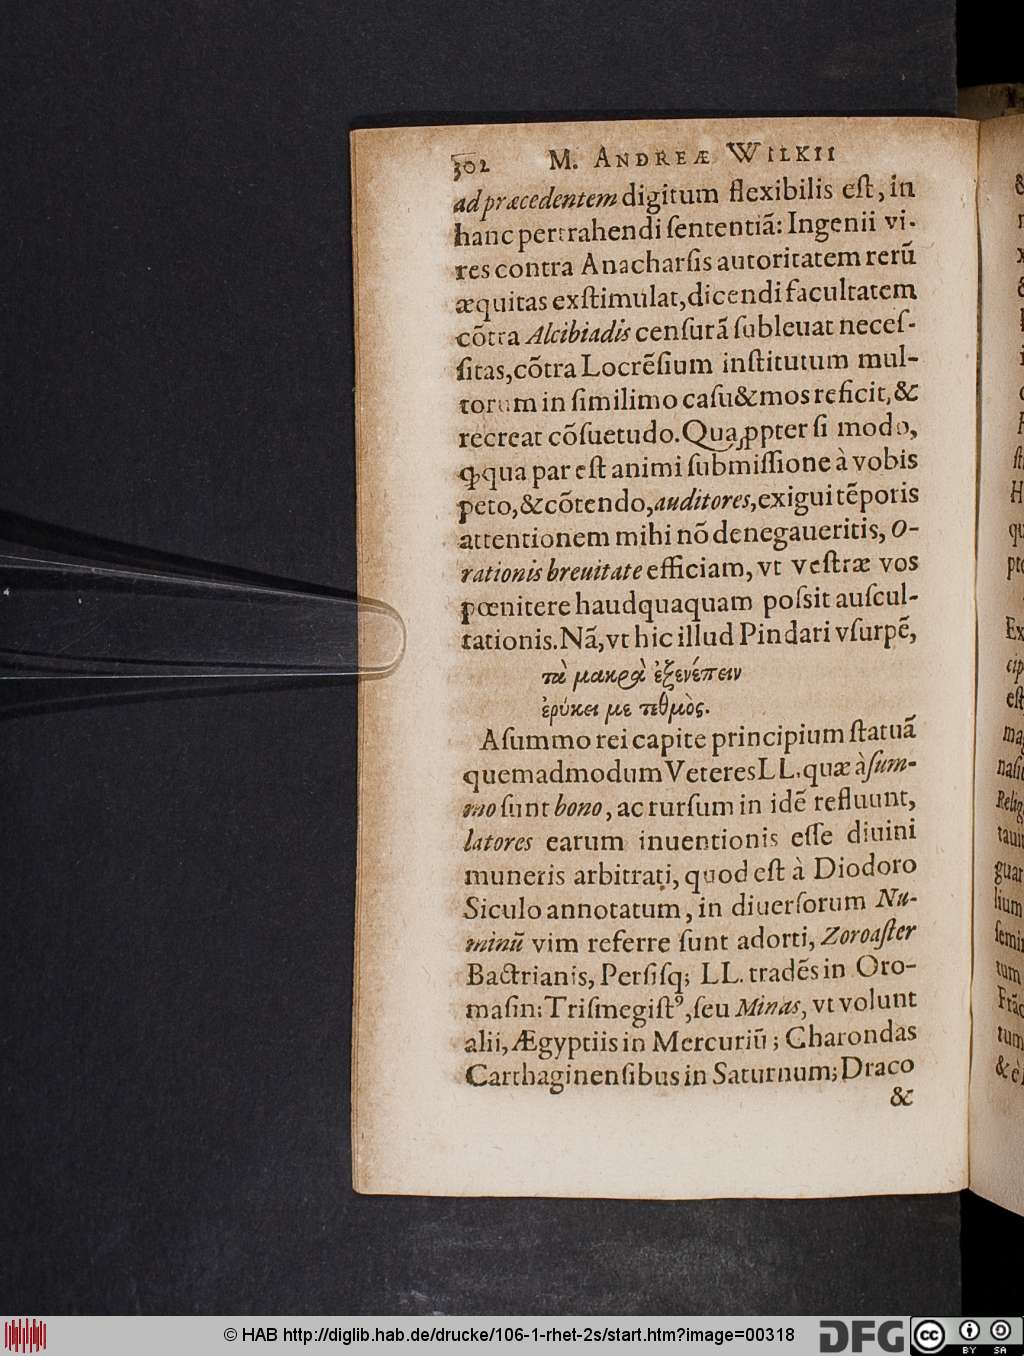 302 M. ANDREÆ WILKII
ad præcedentem digitum flexibilis eſt, in
hanc pertrahendi ſententiã: Ingenii vi-
res contra Anacharſis autoritatem rerũ
æquitas exſtimulat, dicendi facultatem
cõtra Alcibiadis cenſurã ſubleuat neceſ-
ſitas, cõtra Locrẽſium inſtitutum mul-
torum in ſimilimo caſu & mos reficit, &
recreat cõſuetudo. Quaꝓpter ſi modo,
ꝙ qua par eſt animi ſubmiſſione à vobis
peto, & cõtendo, auditores, exigui tẽporis
attentionem mihi nõ denegaueritis, O-
rationis breuitate efficiam, vt veſtræ vos
pœnitere haudquaquam poſsit auſcul-
tationis. Nã, vt hic illud Pindari vſurpẽ,
τὰ μακρὰ ἐξενέπειν
ἐρύκει με τεθμὸς.
A ſummo rei capite principium ſtatuã
quemadmodum Veteres LL. quæ à ſum-
mo ſunt bono, ac rurſum in idẽ refluunt,
latores earum inuentionis eſſe diuini
muneris arbitrati, quod eſt à Diodoro
Siculo annotatum, in diuerſorum Nu-
minũ vim referre ſunt adorti, Zoroaſter
Bactrianis, Perſiſq; LL. tradẽs in Oro-
maſin: Triſmegiſtꝰ, ſeu Minas, vt volunt
alii, Ægyptiis in Mercuriũ; Charondas
Carthaginenſibus in Saturnum; Draco
&
© HAB http://diglib.hab.de/drucke/106-1-rhet-2s/start.htm?image=00318
DFG
cc BY SA